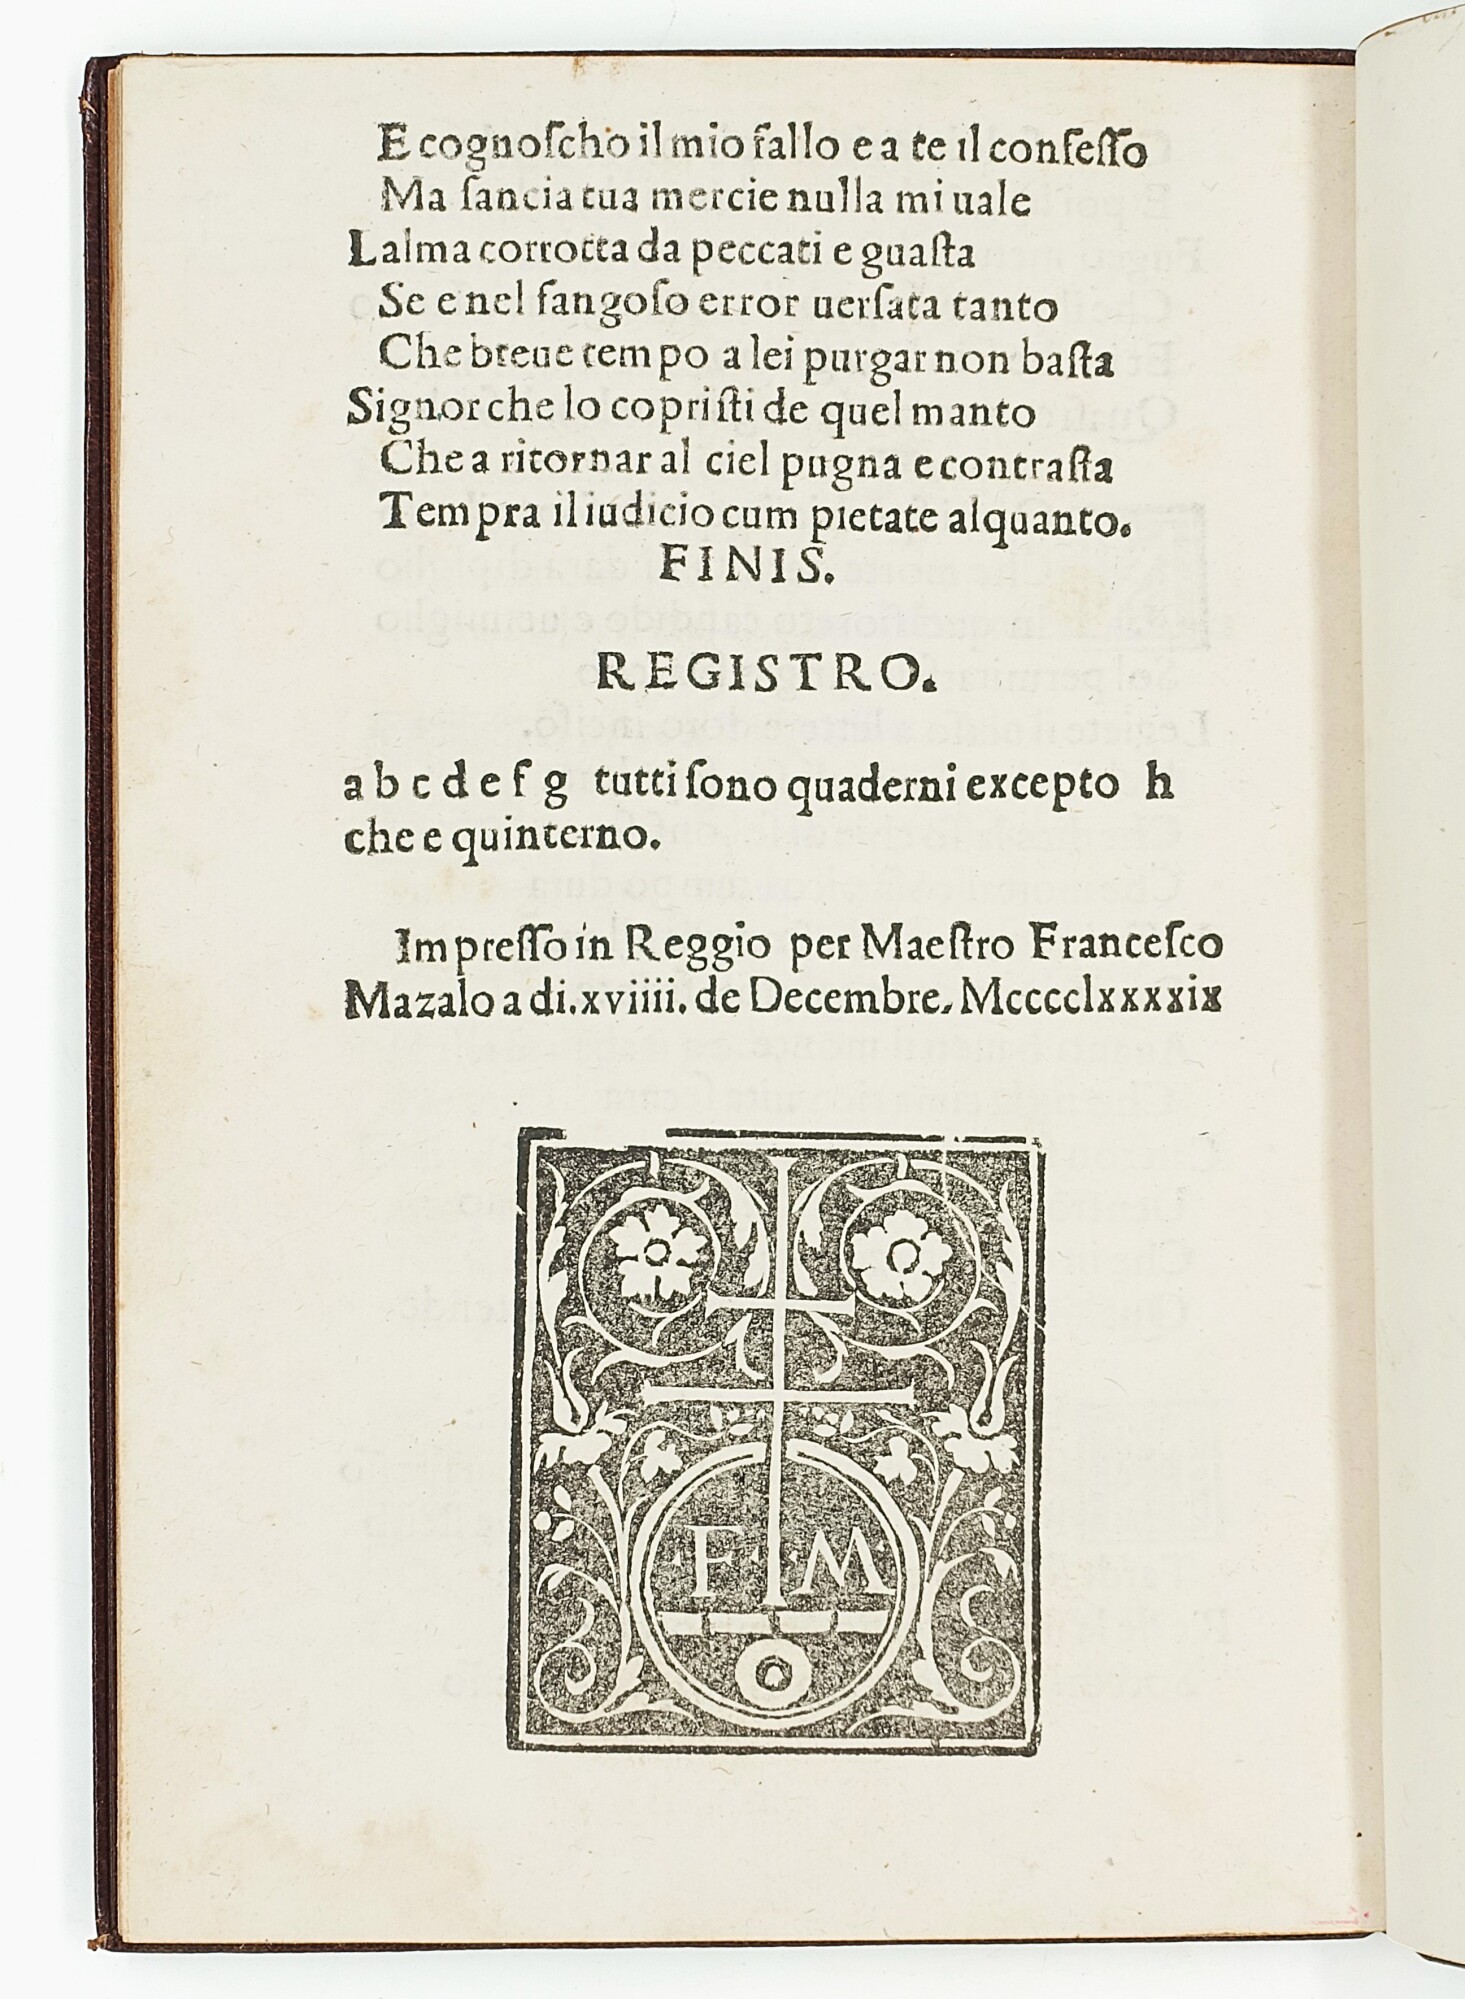 E cognoſcho il mio fallo e a te il confeſſo
Ma ſancia tua mercie nulla mi uale
Lalma corrotta da peccati e guaſta
Se e nel fangoſo error uerſata tanto
Che breue tempo a lei purgar non baſta
Signor che lo copriſti de quel manto
Che a ritornar al ciel pugna e contraſta
Tempra il iudicio cum pietate alquanto.
FINIS.
REGISTRO.
a b c d e f g tutti ſono quaderni excepto h
che e quinterno.
Impreſſo in Reggio per Maeſtro Franceſco
Mazalo a di.xviiii. de Decembre. Mcccclxxxxix
·F· ·M·